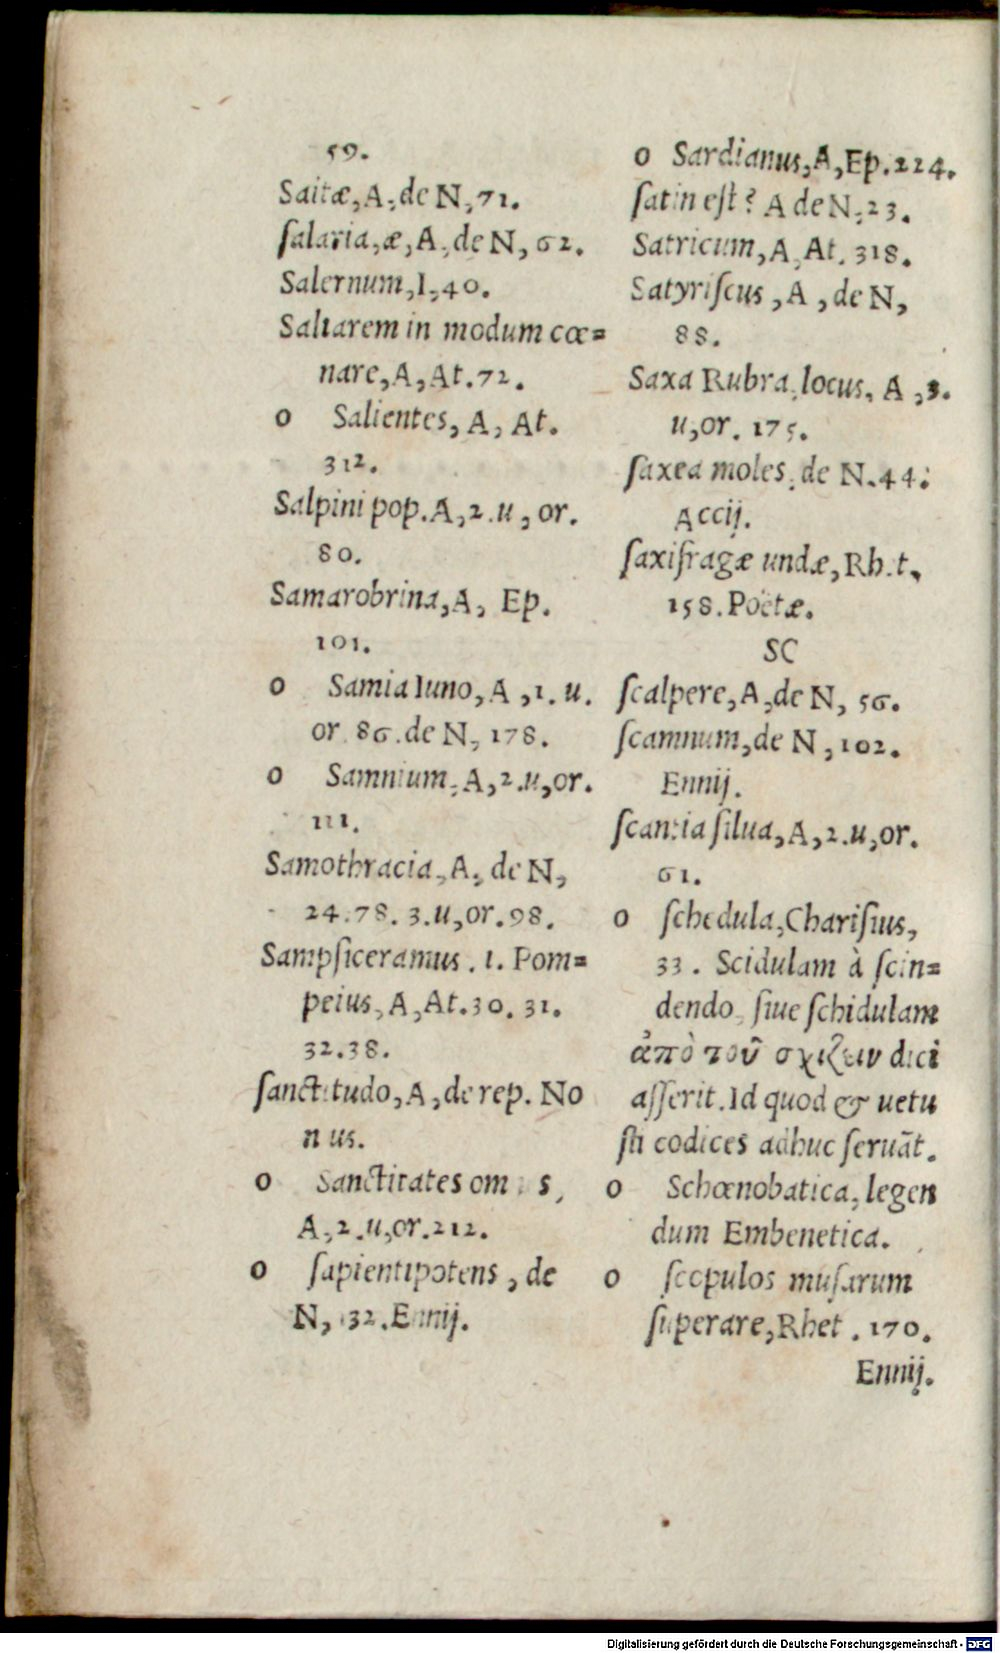 59.
Saitæ, A, de N, 71.
ſalaria, æ, A, de N, 62.
Salernum, I, 40.
Saltarem in modum cœ=
nare, A, At. 72.
o Salientes, A, At.
312.
Salpini pop. A, 2. u, or.
80.
Samarobrina, A, Ep.
101.
o Samia Iuno, A, 1. u.
or 86. de N, 178.
o Samnium, A, 2. u, or.
111.
Samothracia, A, de N,
24. 78. 3. u, or. 98.
Sampſiceramus. 1. Pom=
peius, A, At. 30. 31.
32. 38.
ſanctitudo, A, de rep. No
nus.
o Sanctitates om s,
A, 2. u, or. 212.
o ſapientipotens, de
N, 132. Ennij.
o Sardianus, A, Ep. 224.
ſatin eſt? A de N, 23.
Satricum, A, At. 318.
Satyriſcus, A, de N,
88.
Saxa Rubra, locus, A, 3.
u, or. 175.
ſaxea moles, de N. 44:
Accij.
ſaxifragæ undæ, Rh. t.
158. Poëtæ.
SC
ſcalpere, A, de N, 56.
ſcamnum, de N, 102.
Ennij.
ſcantia ſilua, A, 2. u, or.
61.
o ſchedula, Chariſius,
33. Scidulam à ſcin=
dendo, ſiue ſchidulam
ἀπὸ τοῦ σχίζειν dici
aſſerit. Id quod & uetu
ſti codices adhuc ſeruāt.
o Schœnobatica, legen
dum Embenetica.
o ſcopulos muſarum
ſuperare, Rhet. 170.
Ennij.
Digitalisierung gefördert durch die Deutsche Forschungsgemeinschaft - DFG